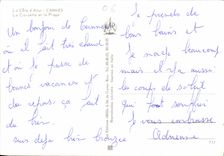 La Côte d'Azur - CANNES
La Croisette et la Plage
Un bonjour de Cannes
où il fait très chaud
et où je passe de
bonnes vacances
du repos ça fait du
bien
suis déjà bien bronzée
Je prends de
bons bains et
je nage beaucoup
mais il y a aussi
les coups de soleil
qui font souffrir
Je vous embrasse
Adrienne